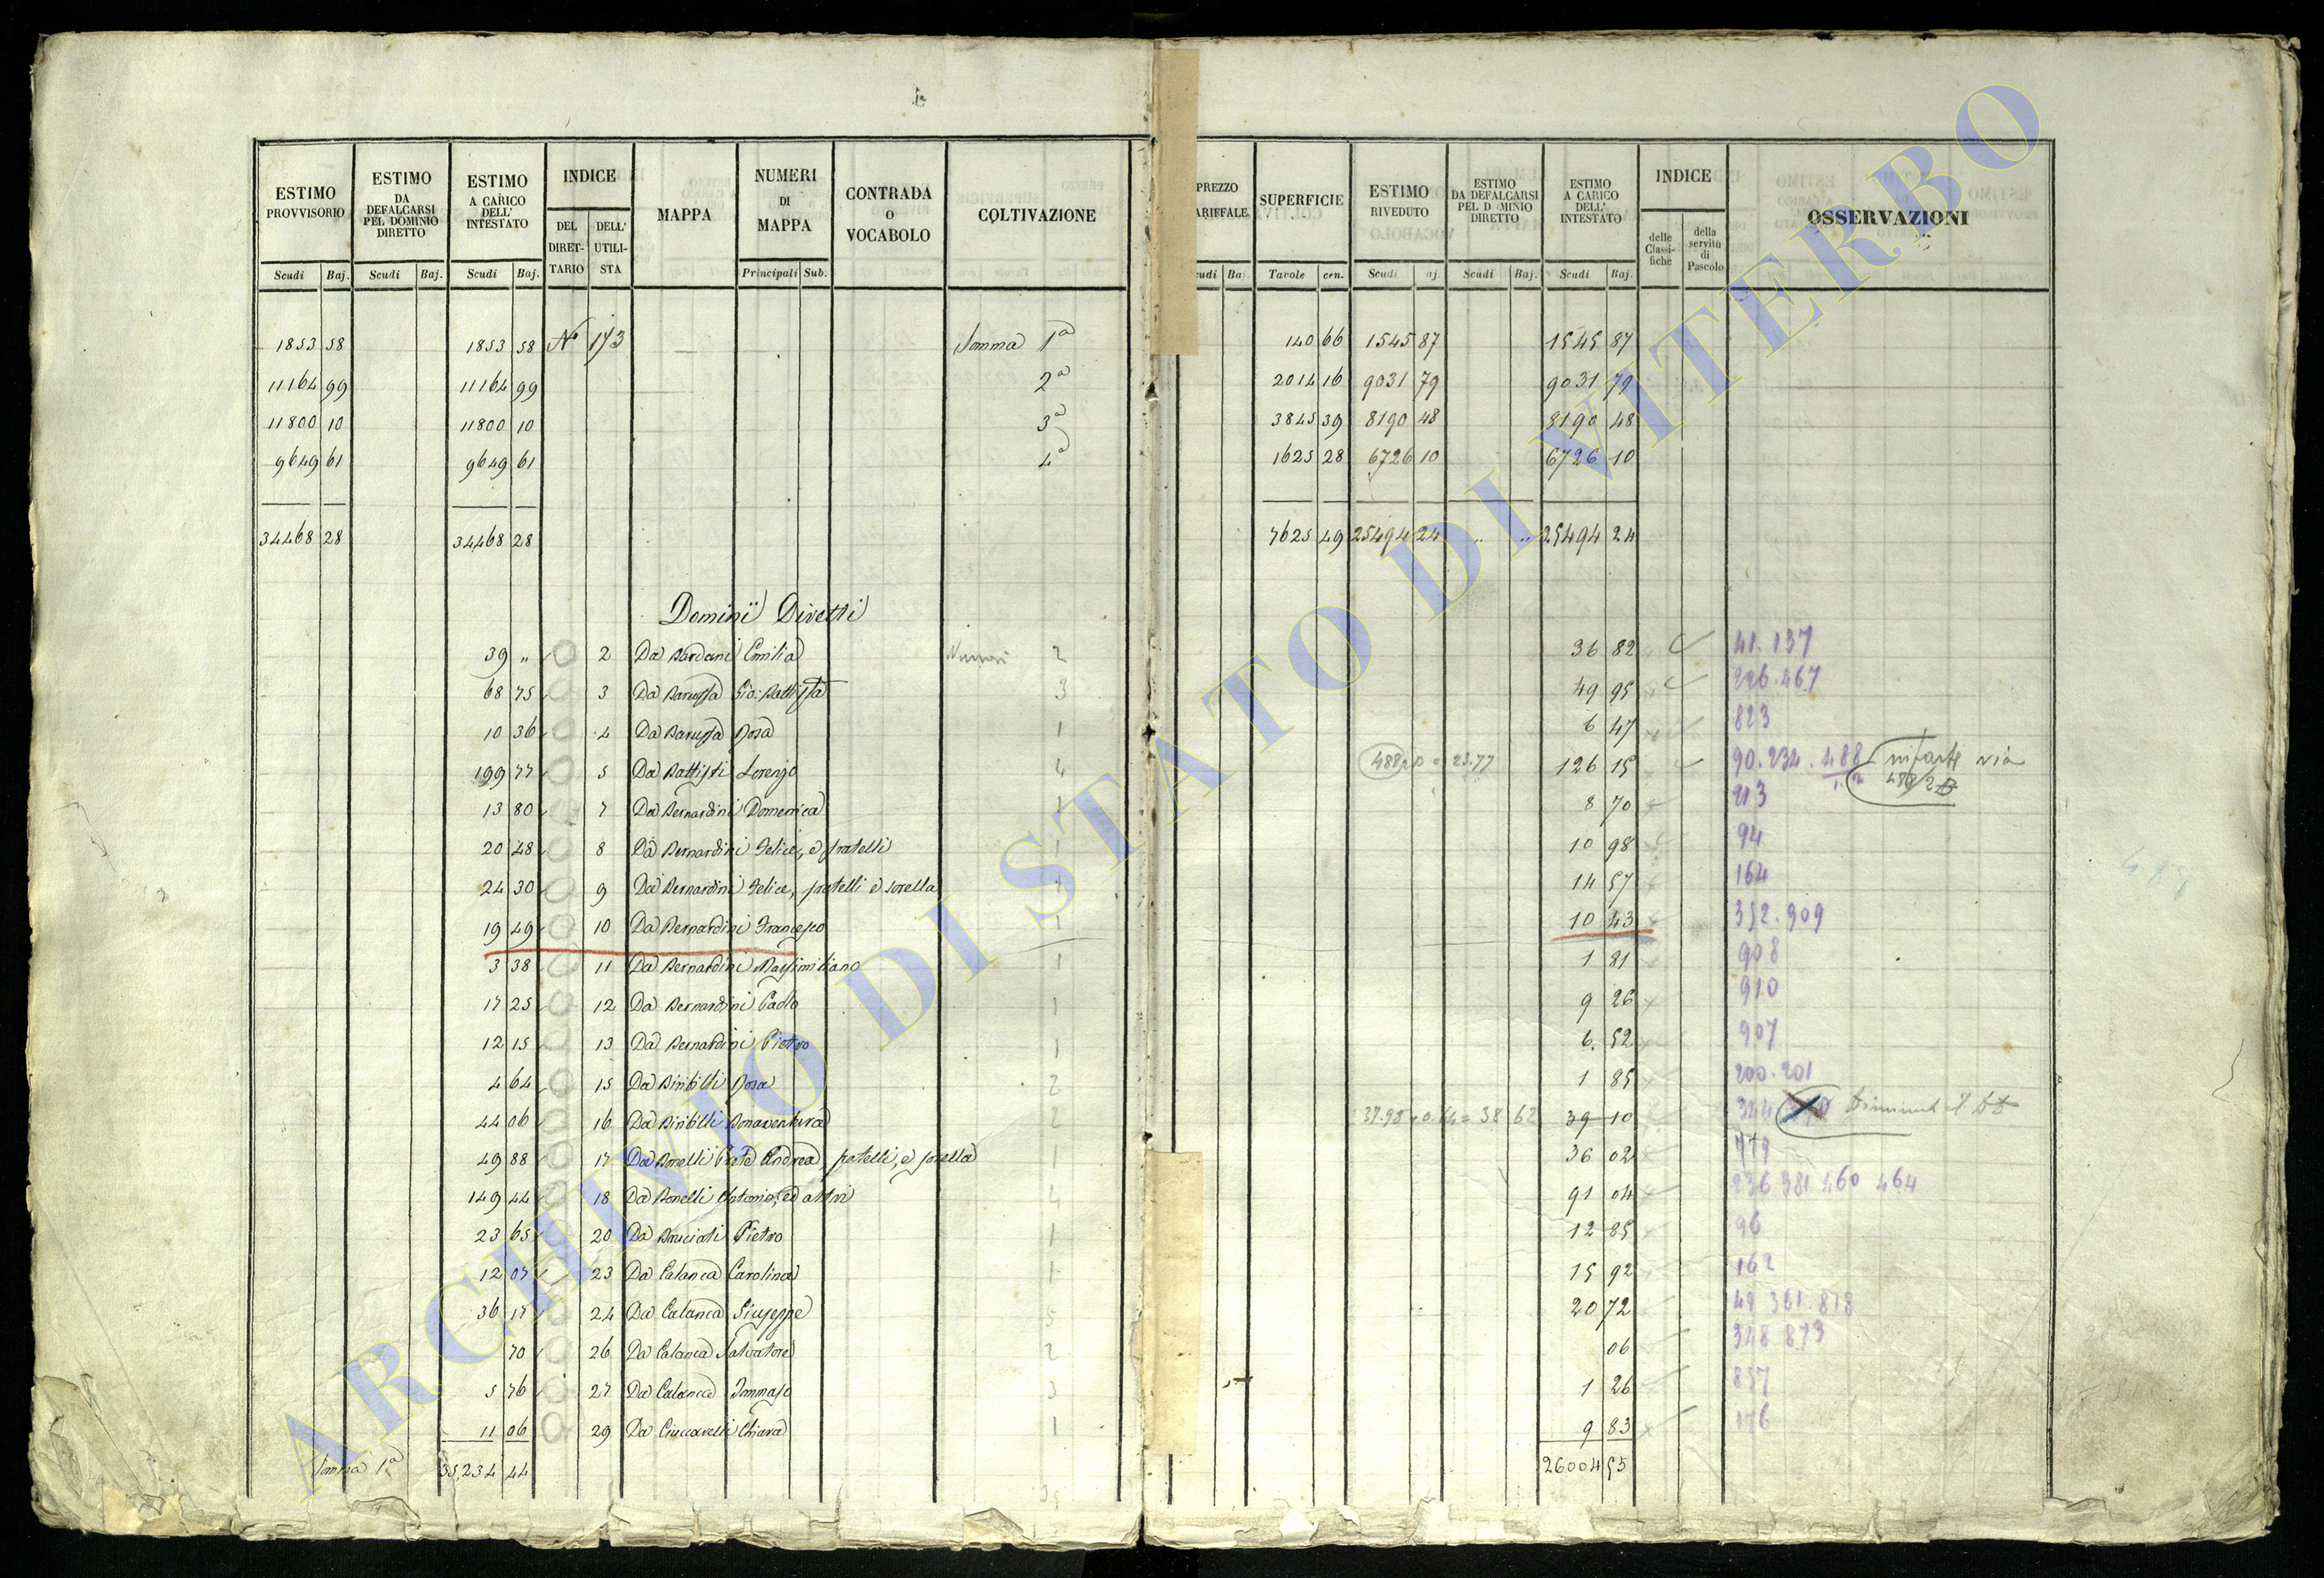 ESTIMO PROVVISORIO | ESTIMO DA DEFALCARSI PEL DOMINIO DIRETTO | ESTIMO A CARICO DELL' INTESTATO | INDICE | MAPPA | NUMERI DI MAPPA | CONTRADA O VOCABOLO | COLTIVAZIONE | PREZZO ARIFFALE | SUPERFICIE | ESTIMO RIVEDUTO | ESTIMO DA DEFALCARSI PEL D MINIO DIRETTO | ESTIMO A CARICO DELL' INTESTATO | INDICE | OSSERVAZIONI
DEL DIRETTARIO | DELL' UTILISTA | delle Classifiche | della servitù di Pascolo
Scudi | Baj. | Scudi | Baj. | Scudi | Baj. | Principali | Sub. | cudi | Baj. | Tavole | cen. | Scudi | aj. | Scudi | Baj. | Scudi | Baj.
1853 58 | 1853 58 | Nº 173 | Somma 1ª | 140 66 | 1545 87 | 1545 87
11164 99 | 11164 99 | 2ª | 2014 16 | 9031 79 | 9031 79
11800 10 | 11800 10 | 3ª | 3845 39 | 8190 48 | 8190 48
9649 61 | 9649 61 | 4ª | 1625 28 | 6726 10 | 6726 10
34468 28 | 34468 28 | 7625 49 | 25494 24 | " " | 25494 24
Dominii Diretti
39 " | 2 | Da Bardani Emilia | Numeri 2 | 36 82 | 41.137
68 75 | 3 | Da Barussa Gio: Battista | 3 | 49 95 | 226.467
10 36 | 4 | Da Barussa Rosa | 1 | 6 47 | 823
199 77 | 5 | Da Battisti Lorenzo | 4 | 488 = 23.77 | 126 15 | 90.234.488 in parte via
13 80 | 7 | Da Bernardini Domenica | 1 | 8 70 | 213
20 48 | 8 | Da Bernardini Felice, e fratelli | 1 | 10 98 | 94
24 30 | 9 | Da Bernardini Felice, fratelli e sorella | 1 | 14 57 | 164
19 49 | 10 | Da Bernardini Francesco | 1 | 10 43 | 352.909
3 38 | 11 | Da Bernardini Massimiliano | 1 | 1 81 | 908
17 25 | 12 | Da Bernardini Paolo | 1 | 9 26 | 910
12 15 | 13 | Da Bernardini Pietro | 1 | 6 52 | 907
4 64 | 15 | Da Biribilli Rosa | 2 | 1 85 | 200.201
44 06 | 16 | Da Biribilli Bonaventura | 2 | 37.98 + 0.64 = 38 62 | 39 10 | 344
49 88 | 17 | Da Borelli Andrea fratelli, e sorella | 1 | 36 02 | 779
149 44 | 18 | Da Borelli Antonio, ed altri | 4 | 91 04 | 236 381 460 464
23 65 | 20 | Da Bruciati Pietro | 1 | 12 85 | 96
12 07 | 23 | Da Calanca Carolina | 1 | 15 92 | 162
36 17 | 24 | Da Calanca Giuseppe | 5 | 20 72 | 49 361.878
70 | 26 | Da Calanca Salvatore | 2 | 06 | 348 873
5 76 | 27 | Da Calanca Tommaso | 3 | 1 26 | 857
11 06 | 29 | Da Ciuccarelli Chiara | 1 | 9 83 | 176
Somma 1ª | 35,234 44 | 26004 55
ARCHIVIO DI STATO DI VITERBO